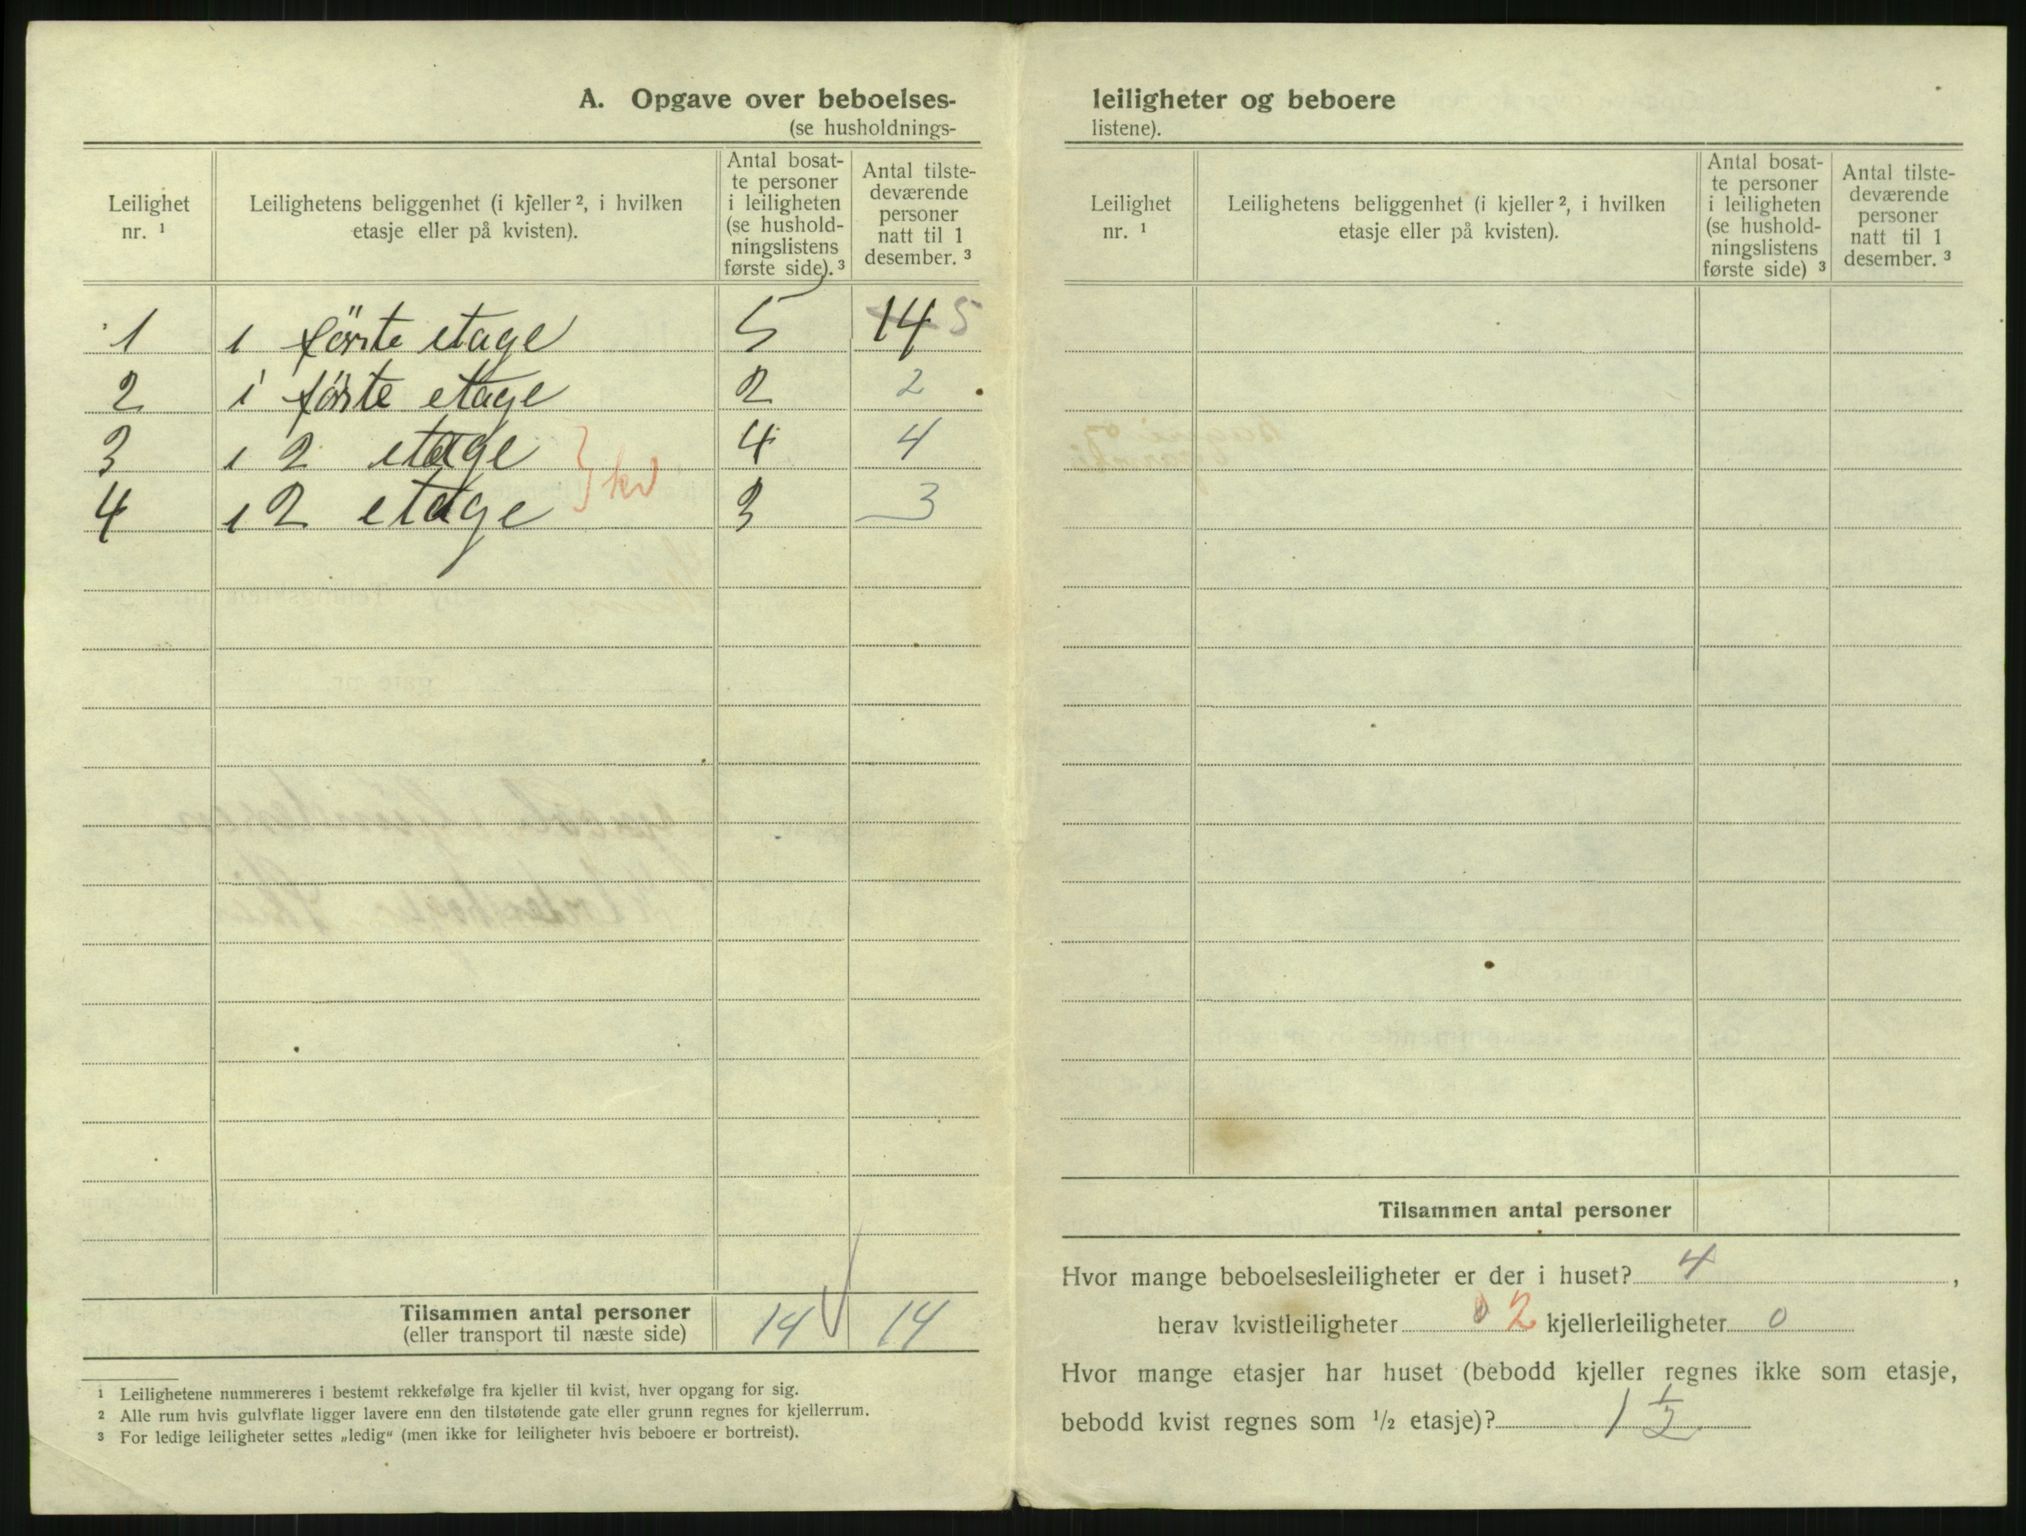 A. Opgave over beboelses-
(se husholdnings-
Leilighet nr. ¹
Leilighetens beliggenhet (i kjeller ², i hvilken etasje eller på kvisten).
Antal bosat-
te personer
i leiligheten
(se hushold-
ningslistens
første side). ³
Antal tilste-
deværende
personer
natt til 1
desember. ³
1 i förste etage 5 14 5
2 i förste etage 2 2
3 i 2 etage 4 4
kv
4 i 2 etage 3 3
Tilsammen antal personer 14 14
(eller transport til næste side)
¹ Leilighetene nummereres i bestemt rekkefølge fra kjeller til kvist, hver opgang for sig.
² Alle rum hvis gulvflate ligger lavere enn den tilstøtende gate eller grunn regnes for kjellerrum.
³ For ledige leiligheter settes „ledig“ (men ikke for leiligheter hvis beboere er bortreist).
leiligheter og beboere
listene).
Leilighet nr. ¹
Leilighetens beliggenhet (i kjeller ², i hvilken etasje eller på kvisten).
Antal bosat-
te personer
i leiligheten
(se hushold-
ningslistens
første side) ³
Antal tilste-
deværende
personer
natt til 1
desember. ³
Tilsammen antal personer
Hvor mange beboelsesleiligheter er der i huset? 4 ,
herav kvistleiligheter 0 2 kjellerleiligheter 0
Hvor mange etasjer har huset (bebodd kjeller regnes ikke som etasje,
bebodd kvist regnes som ½ etasje)? 1 ½